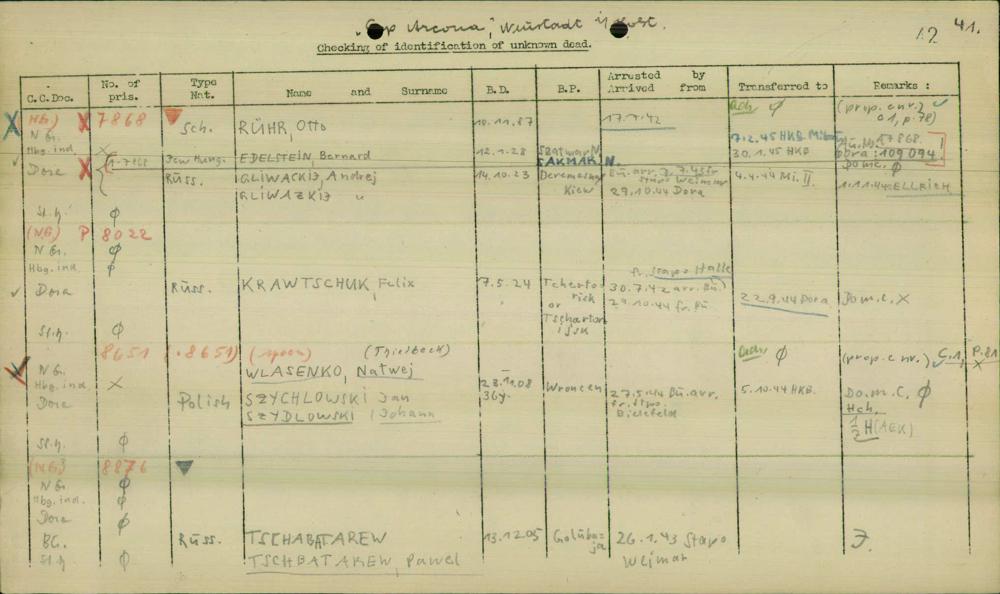 "Cap Arcona", Neustadt i/Holst.
12 41.
Checking of identification of unknown dead.
C.C.Doc. No. of pris. Type Nat. Name and Surname B.D. B.P. Arrested by Arrived from Transferred to Remarks :
NG) X 7868 Sch. RÜHR, Otto 10.11.87 17.7.42 ∅ (prop.e nr.)
c1, p.78)
N G. 7.2.45 HKB. 57868.
Hbg.ind. X Jew Hung. EDELSTEIN, Bernard 12.1.28 Szatmar N. 30.1.45 HKB Dora: 109 094
SAKMAR N. Do m.c. ∅
Dora X Rüss. GLIWACKIJ, Andrej 14.10.23 Kiew Weimar 4.4.44 Mi. II
GLIWAZKIJ " 29.10.44 Dora 1.11.44: ELLRICH
St.n. ∅
(NG) P 8022
N G. ∅
Hbg.ind. ∅
fr. Stapo Halle
Dora Rüss. KRAWTSCHUK, Felix 7.5.24 Tcherto 30.7.42 arr. Bu. 22.9.44 Dora Do m.c. X
rick 29.10.44 fr. Bu.
or
Tscharton
issk
St.n. ∅
8651 (.8651) (spoon) (Thielbeck) ∅ (prop.e nr.) C.1, P.81
N G. WLASENKO, Natwej X
Hbg.ind. X 23.11.08
Dora Polish SZYCHLOWSKI Jan 36y. Wroncen 27.5.44 Bu. arr. 5.10.44 HKB. Do. m. C. ∅
SZYDLOWSKI / Johann fr. Stpo. Hch.
Bielefeld ½ H (AEK)
St.n. ∅
(NG) 8876
N G. ∅
Hbg.ind. ∅
Dora ∅
BC. Rüss. TSCHABATAREW 13.12.05 Goluba- 26.1.43 Stapo J.
ja Weimar
St.n ∅ TSCHBATAREW, Pawel